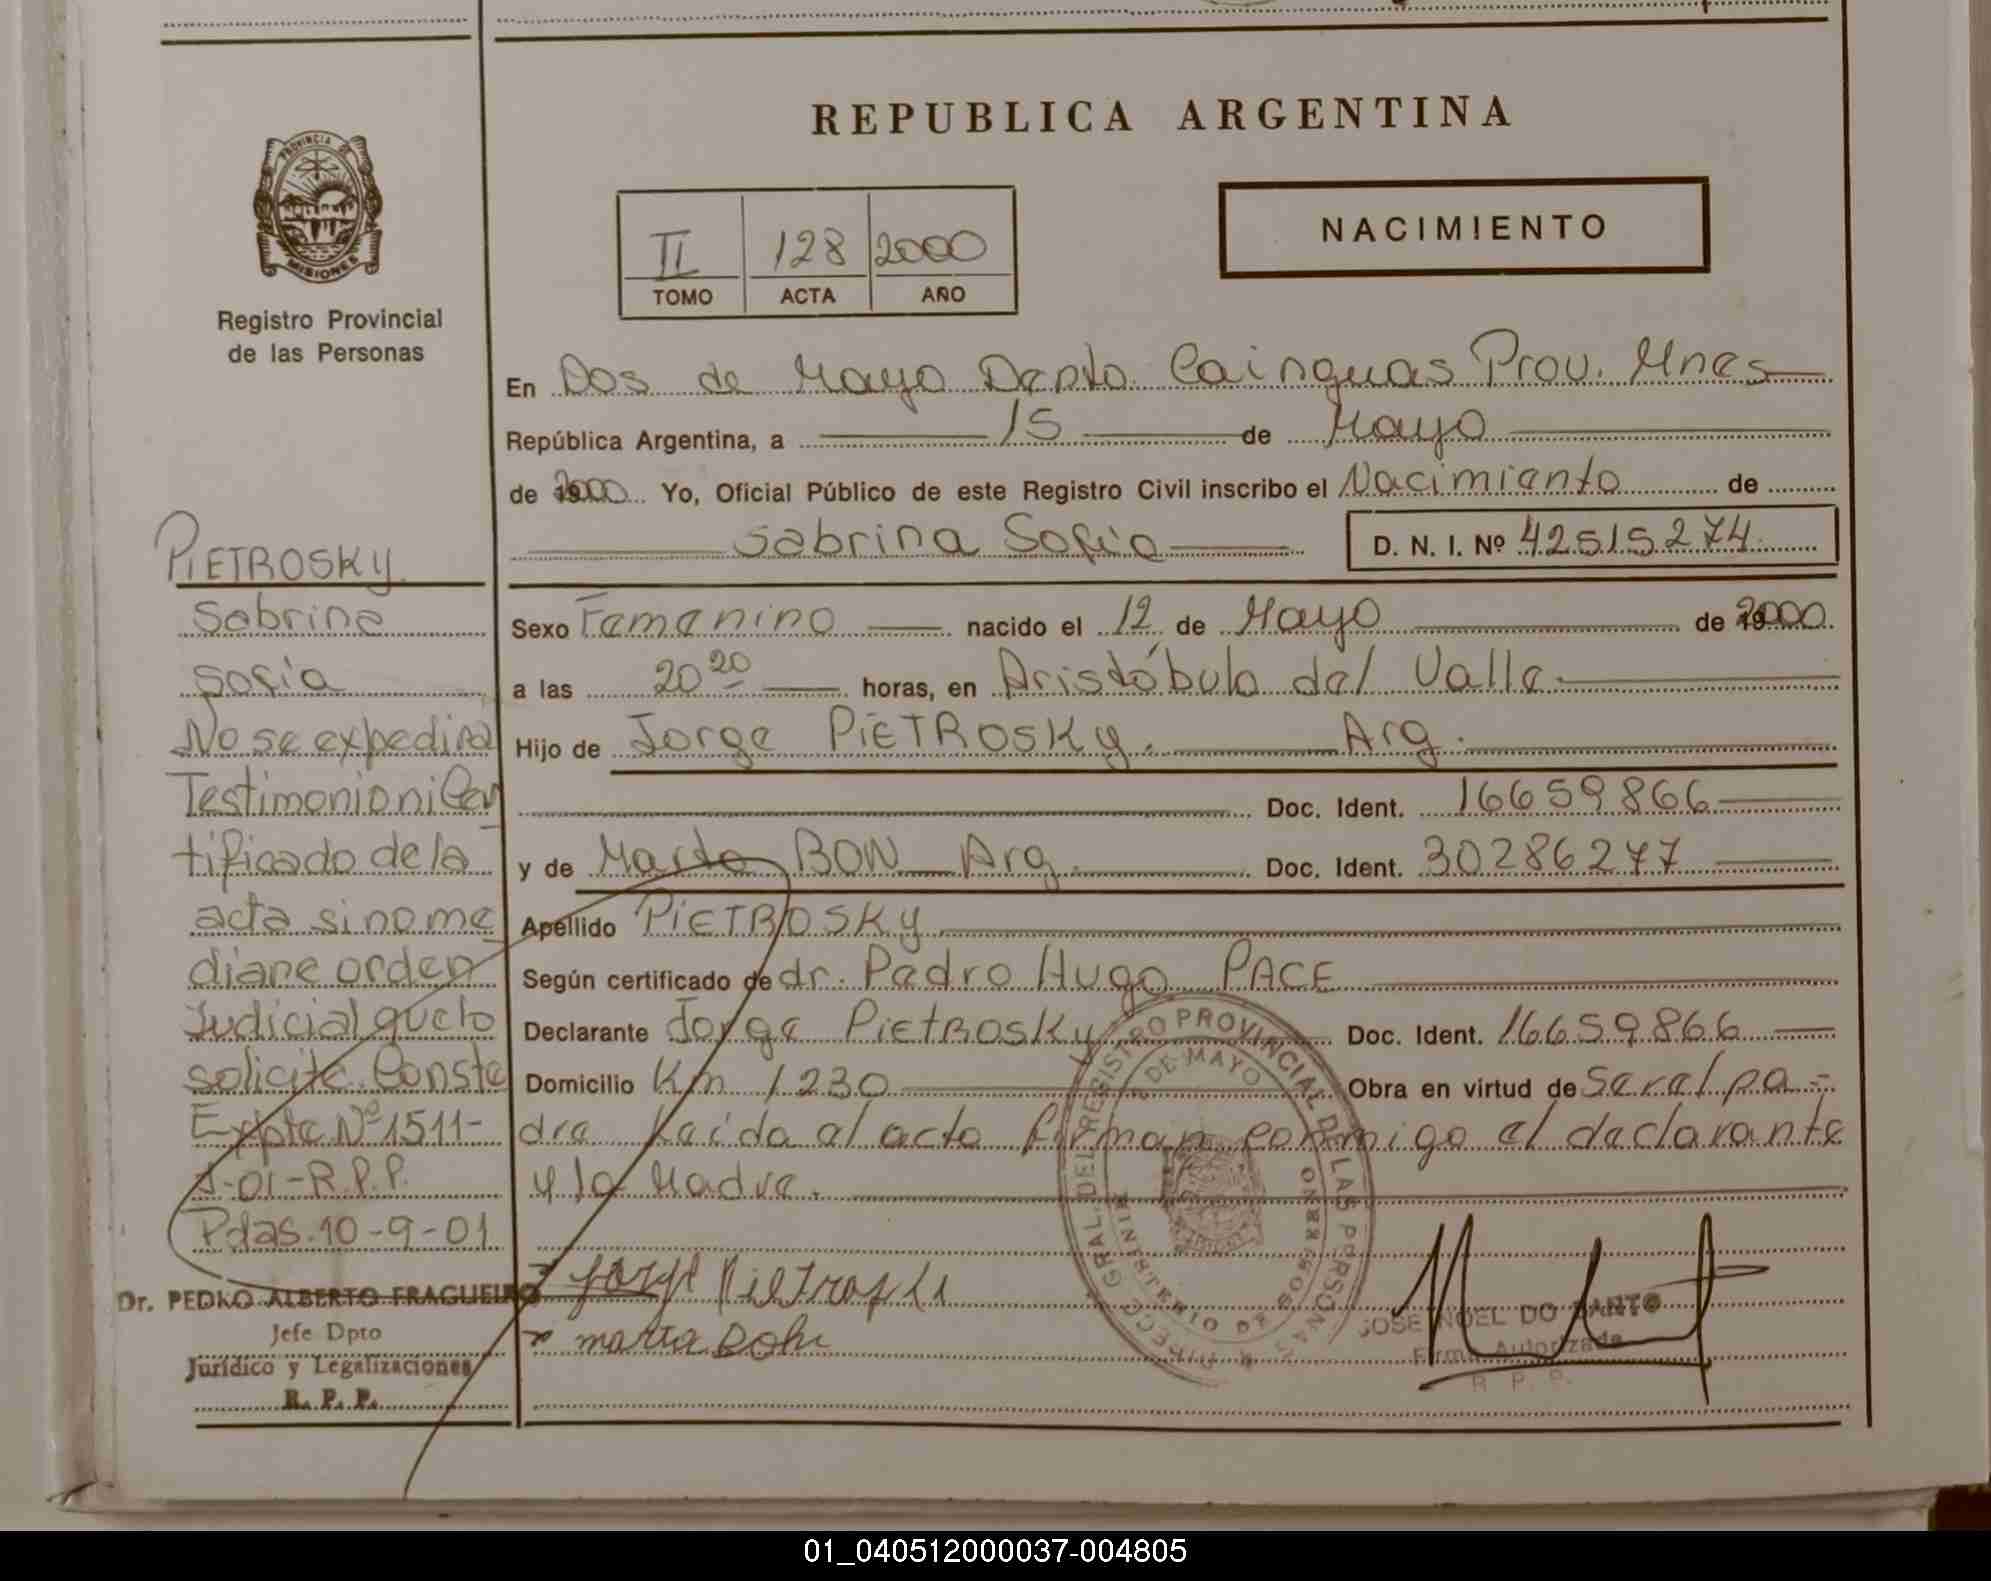 REPUBLICA ARGENTINA
PROVINCIA DE
MISIONES
Registro Provincial
de las Personas
II 128 2000
TOMO ACTA AÑO
NACIMIENTO
En Dos de Mayo Depto. Cainguas Prov. Mnes
República Argentina, a 15 de Mayo
de 2000 Yo, Oficial Público de este Registro Civil inscribo el Nacimiento de
Sabrina Sofia D. N. I. Nº 42515274
Sexo Femenino nacido el 12 de Mayo de 2000
a las 20 20 horas, en Aristóbulo del Valle
Hijo de Jorge PIETROSKY. Arg.
Doc. Ident. 16659866
y de Marta BON Arg. Doc. Ident. 30286277
Apellido PIETROSKY
Según certificado de dr. Pedro Hugo PACE
Declarante Jorge PIETROSKY Doc. Ident. 16659866
Domicilio Km 1230 Obra en virtud de ser el pa-
dre Leída al acto firman conmigo el declarante
y la Madre.
Jorge Pietroski
marta
JOSE NOEL DO SANTO
Firma Autorizada
R. P. P.
DIRECC. GRAL. DEL REGISTRO PROVINCIAL DE LAS PERSONAS
DE MAYO
MINISTERIO DE GOBIERNO
PIETROSKY
Sabrina
Sofía
No se expedirá
Testimonio ni Cer
tificado de la
acta sino me
diare orden
Judicial que lo
solicite. Conste
Expte Nº 1511-
J-01-R.P.P.
Pdas. 10-9-01
Dr. PEDRO ALBERTO FRAGUEIRO
Jefe Dpto
Jurídico y Legalizaciones
R. P. P.
01_040512000037-004805